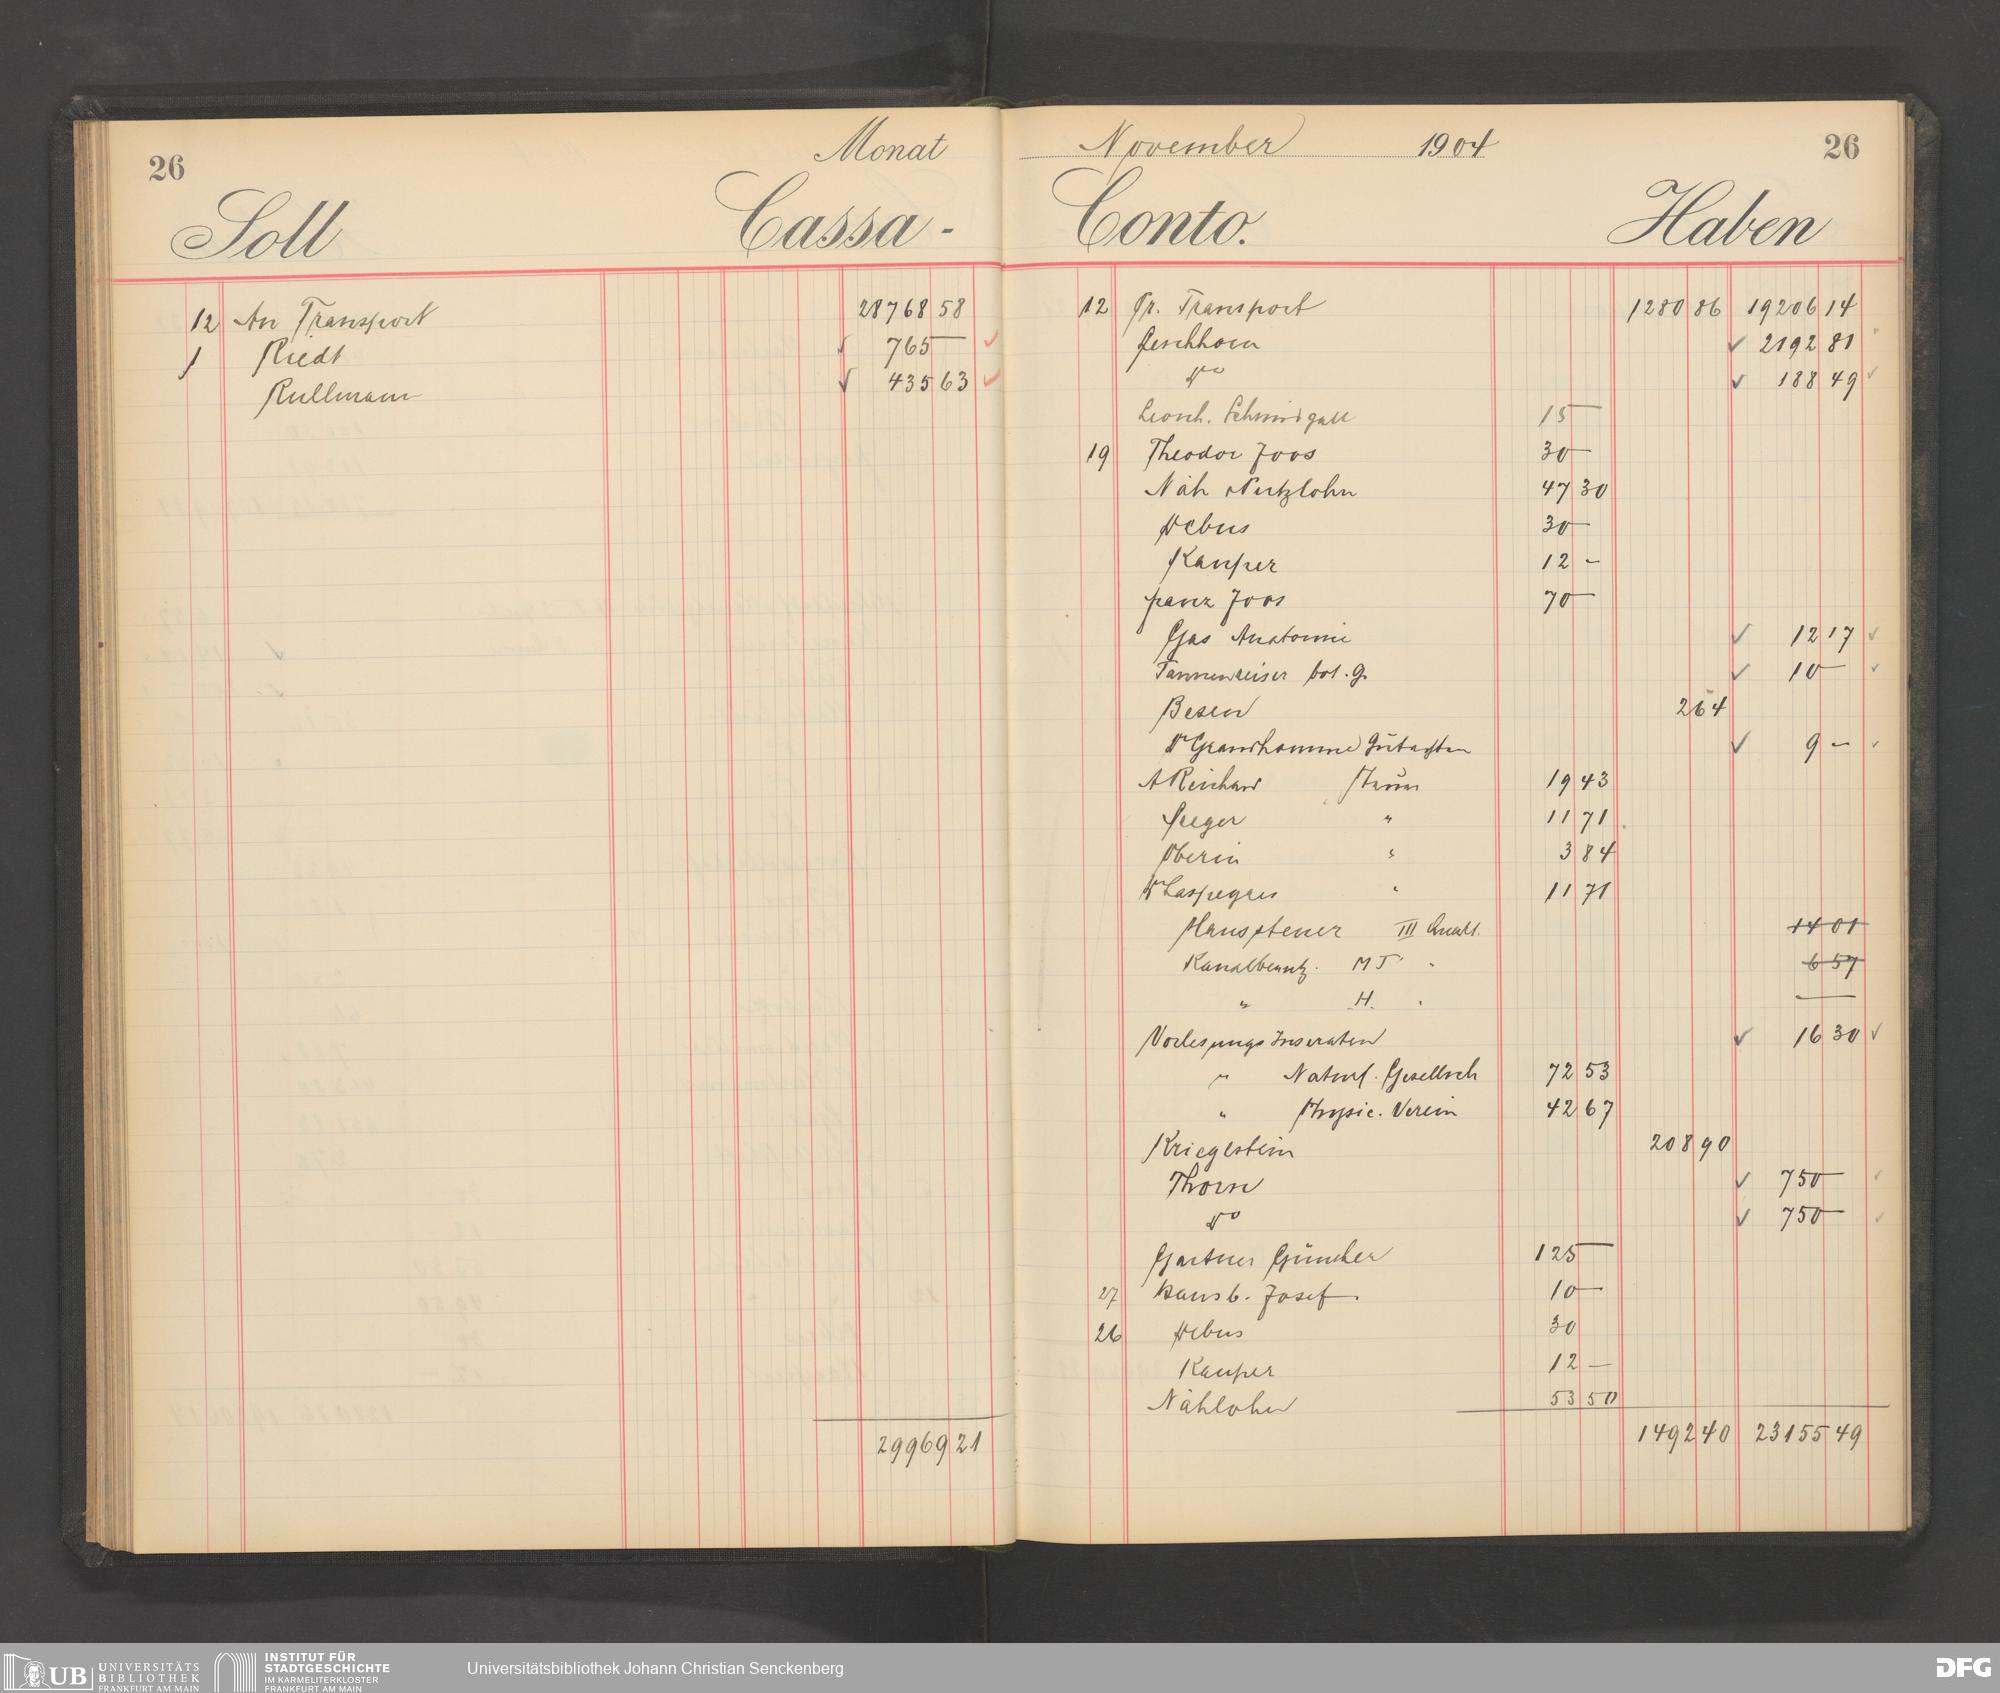 26
Monat
Soll Cassa-
12 An Transport 28768 58
1 Riedt 765 —
Rullmann 435 63
29969 21
November 1904 26
Conto. Haben
12 Pr. Transport 1280 86 19206 14
Peschhorn 2192 81
do 188 49
Leonh. 15 —
19 Theodor Joos 30 —
Näh Putzlohn 47 30
Debus 30 —
Kauper 12 —
Franz Joos 70 —
Gas Anatomie 12 17
Tannenreiser bot. G. 10 —
Besen 2 64
Dr Grandhomme Gutachten 9 —
A Reichard 19 43
Seeger " 11 71
Oberin " 3 84
Dr Laspeyres " 11 71
Haussteuer III Quart. 14 01
Kanalbenutz. M J " 6 57
" H. " —
Vorlesungs Inseraten 16 30
" Naturf. Gesellsch 72 53
" Physic. Verein 42 67
Kriegstein 208 90
Thorn 750 —
do 750 —
Gartner Günther 125 —
27 Hausb. Josef 10 —
26 Debus 30
Kauper 12 —
Nählohn 53 50
1492 40 23155 49
UB UNIVERSITÄTS
BIBLIOTHEK
FRANKFURT AM MAIN
INSTITUT FÜR
STADTGESCHICHTE
IM KARMELITERKLOSTER
FRANKFURT AM MAIN
Universitätsbibliothek Johann Christian Senckenberg
DFG